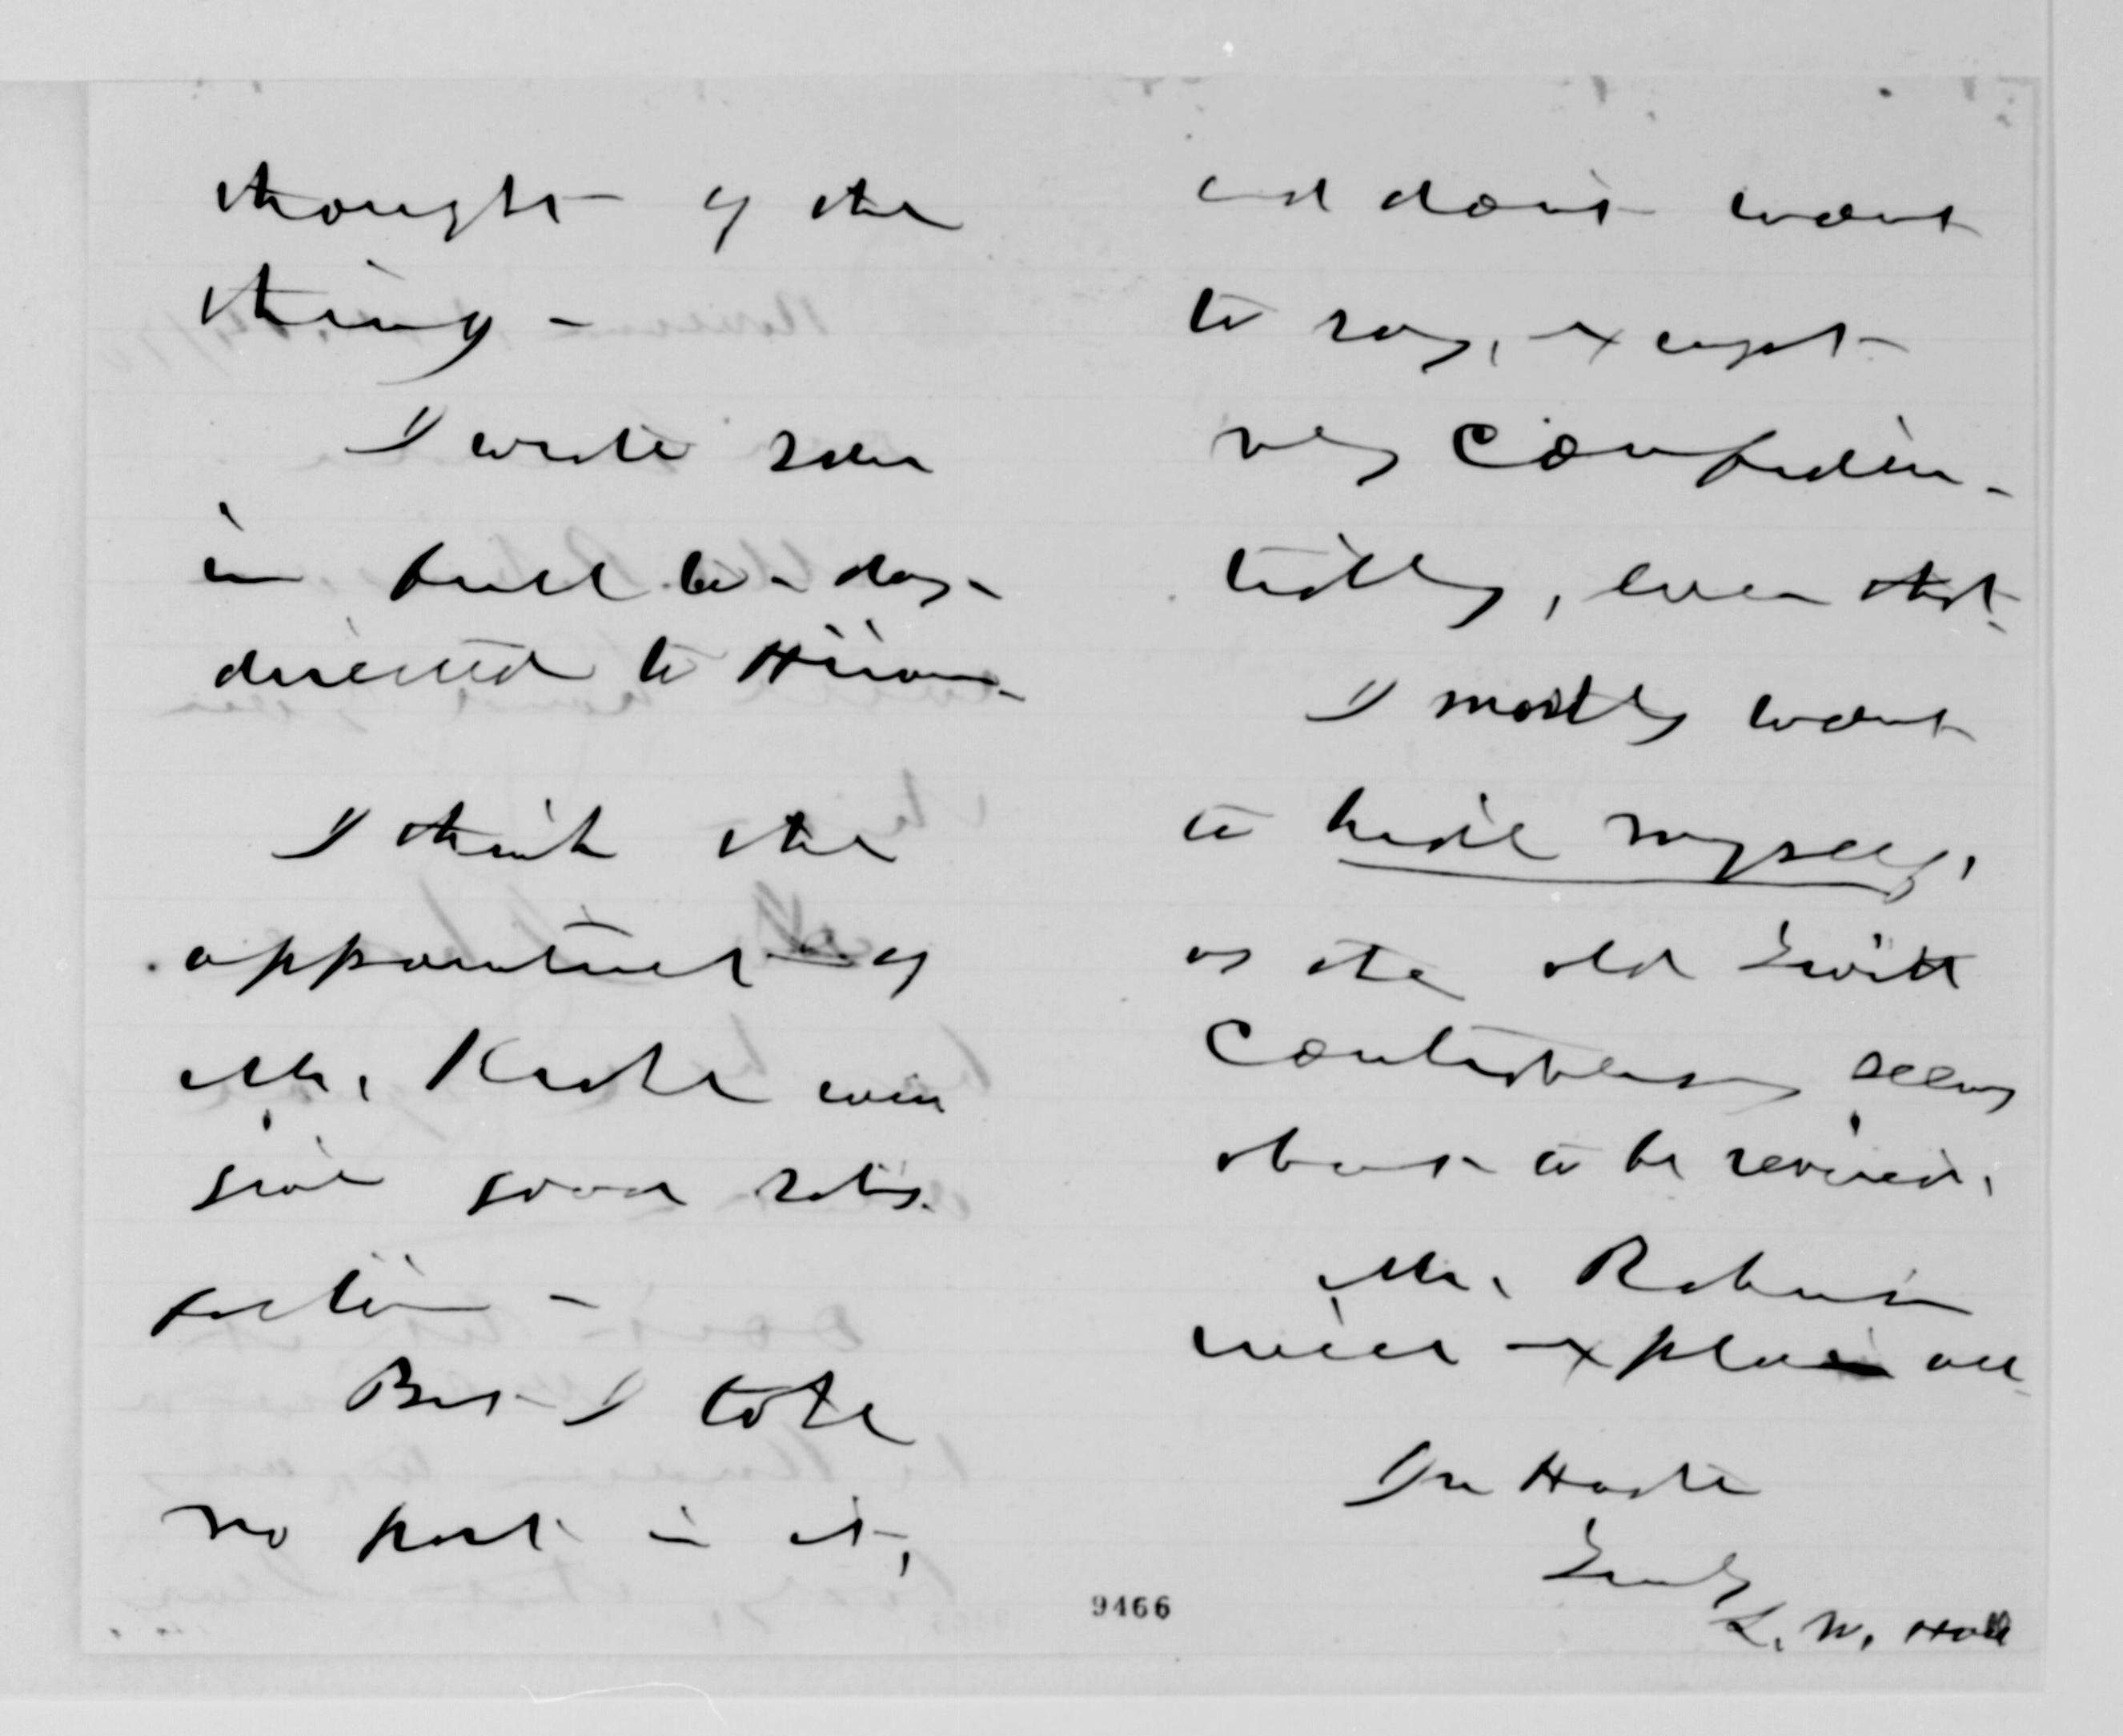 thought of the
thing -
I wrote you
in full to-day -
directed to Hiram -
I think the
appointment of
Mr. will
give good satis-
faction -
But I take
no part in it,
and don't want
to say, except
very confiden-
tially, even that.
I mostly want
to hide myself,
as the old Swift
Controversy seems
about to be revived.
Mr. Robinson
will explain all
In Haste
Truly
L. W. Hall
9466